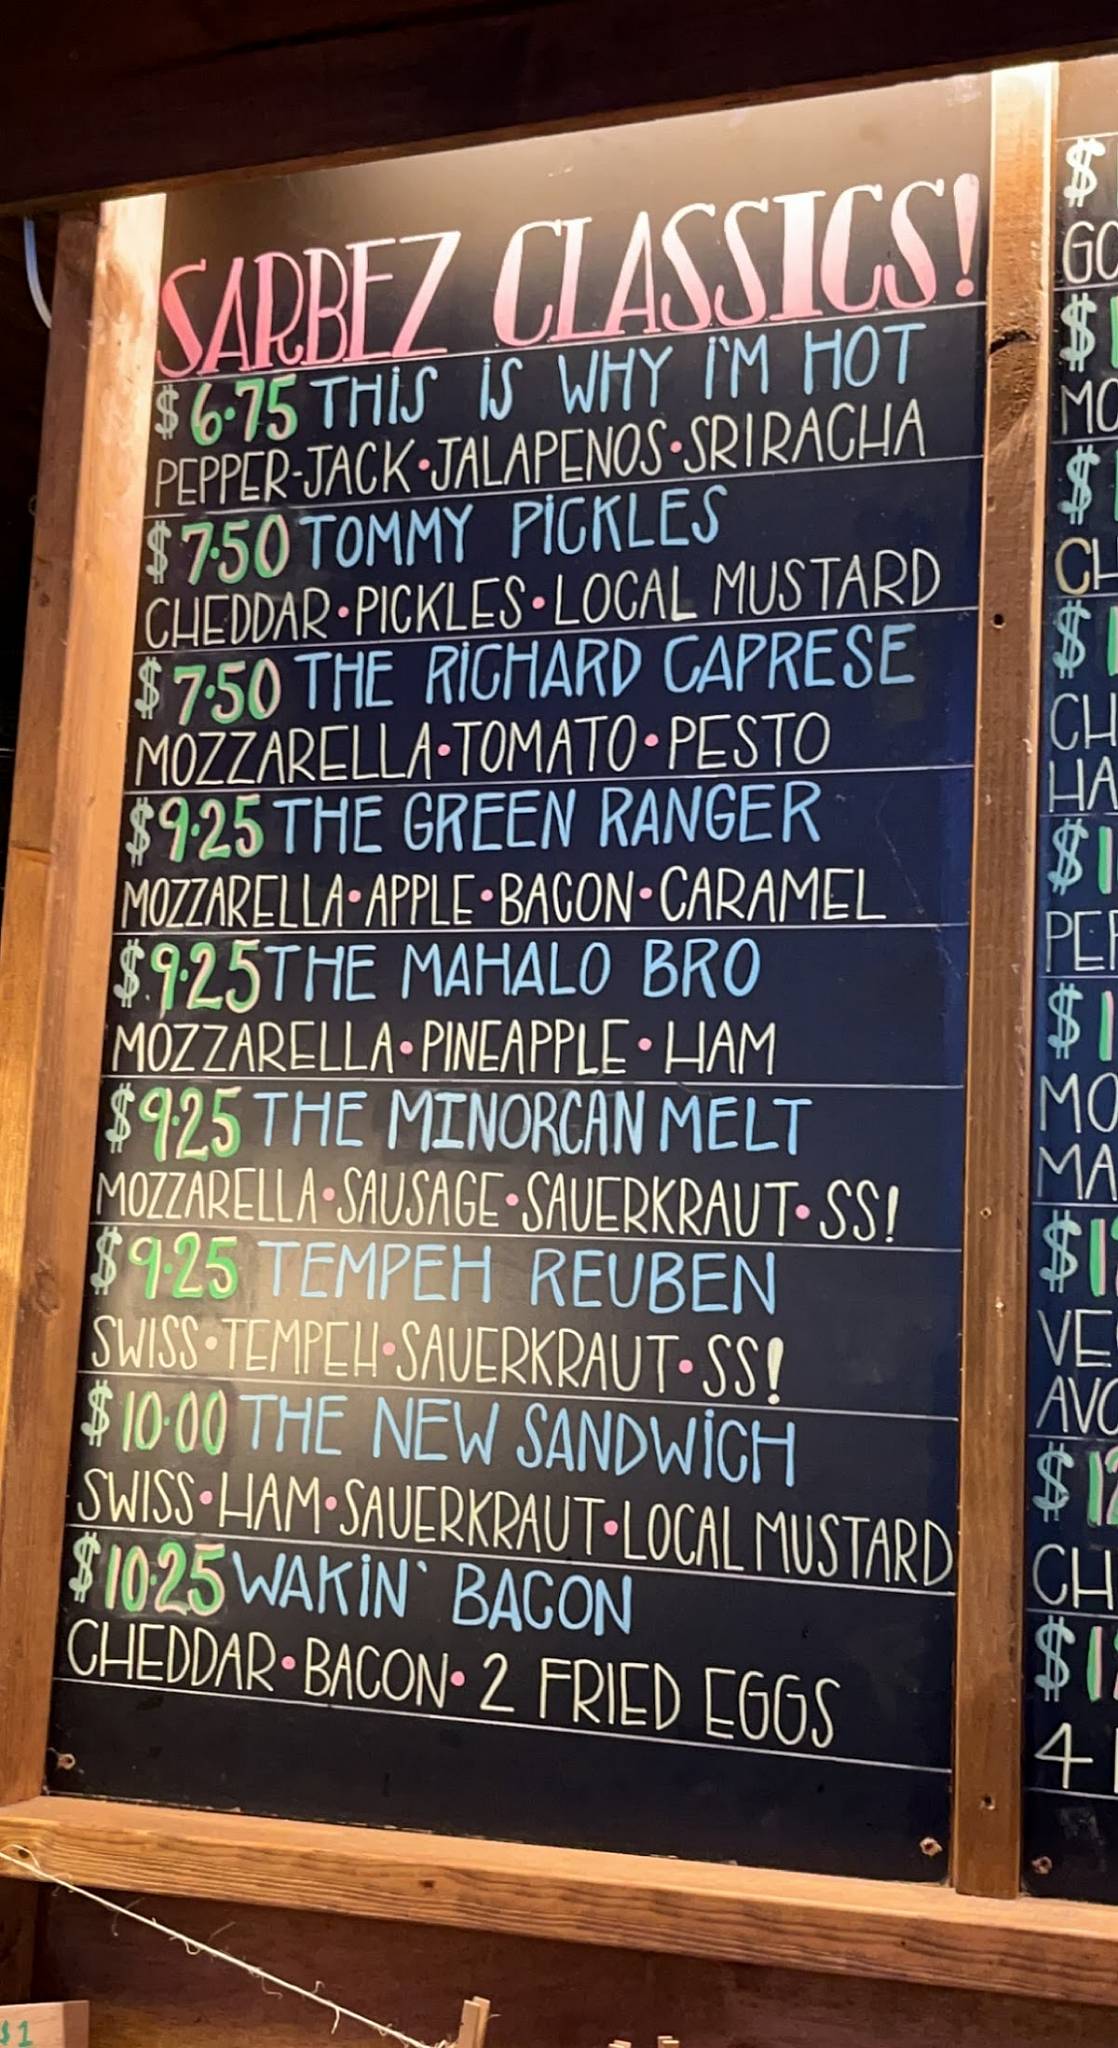 SARBEZ CLASSICS!
$6.75 THIS IS WHY I'M HOT
PEPPER-JACK•JALAPENOS•SRIRACHA
$7.50 TOMMY PICKLES
CHEDDAR•PICKLES•LOCAL MUSTARD
$7.50 THE RICHARD CAPRESE
MOZZARELLA•TOMATO•PESTO
$9.25 THE GREEN RANGER
MOZZARELLA•APPLE•BACON•CARAMEL
$9.25 THE MAHALO BRO
MOZZARELLA•PINEAPPLE•HAM
$9.25 THE MINORCAN MELT
MOZZARELLA•SAUSAGE•SAUERKRAUT•SS!
$9.25 TEMPEH REUBEN
SWISS•TEMPEH•SAUERKRAUT•SS!
$10.00 THE NEW SANDWICH
SWISS•HAM•SAUERKRAUT•LOCAL MUSTARD
$10.25 WAKIN' BACON
CHEDDAR•BACON•2 FRIED EGGS
$1